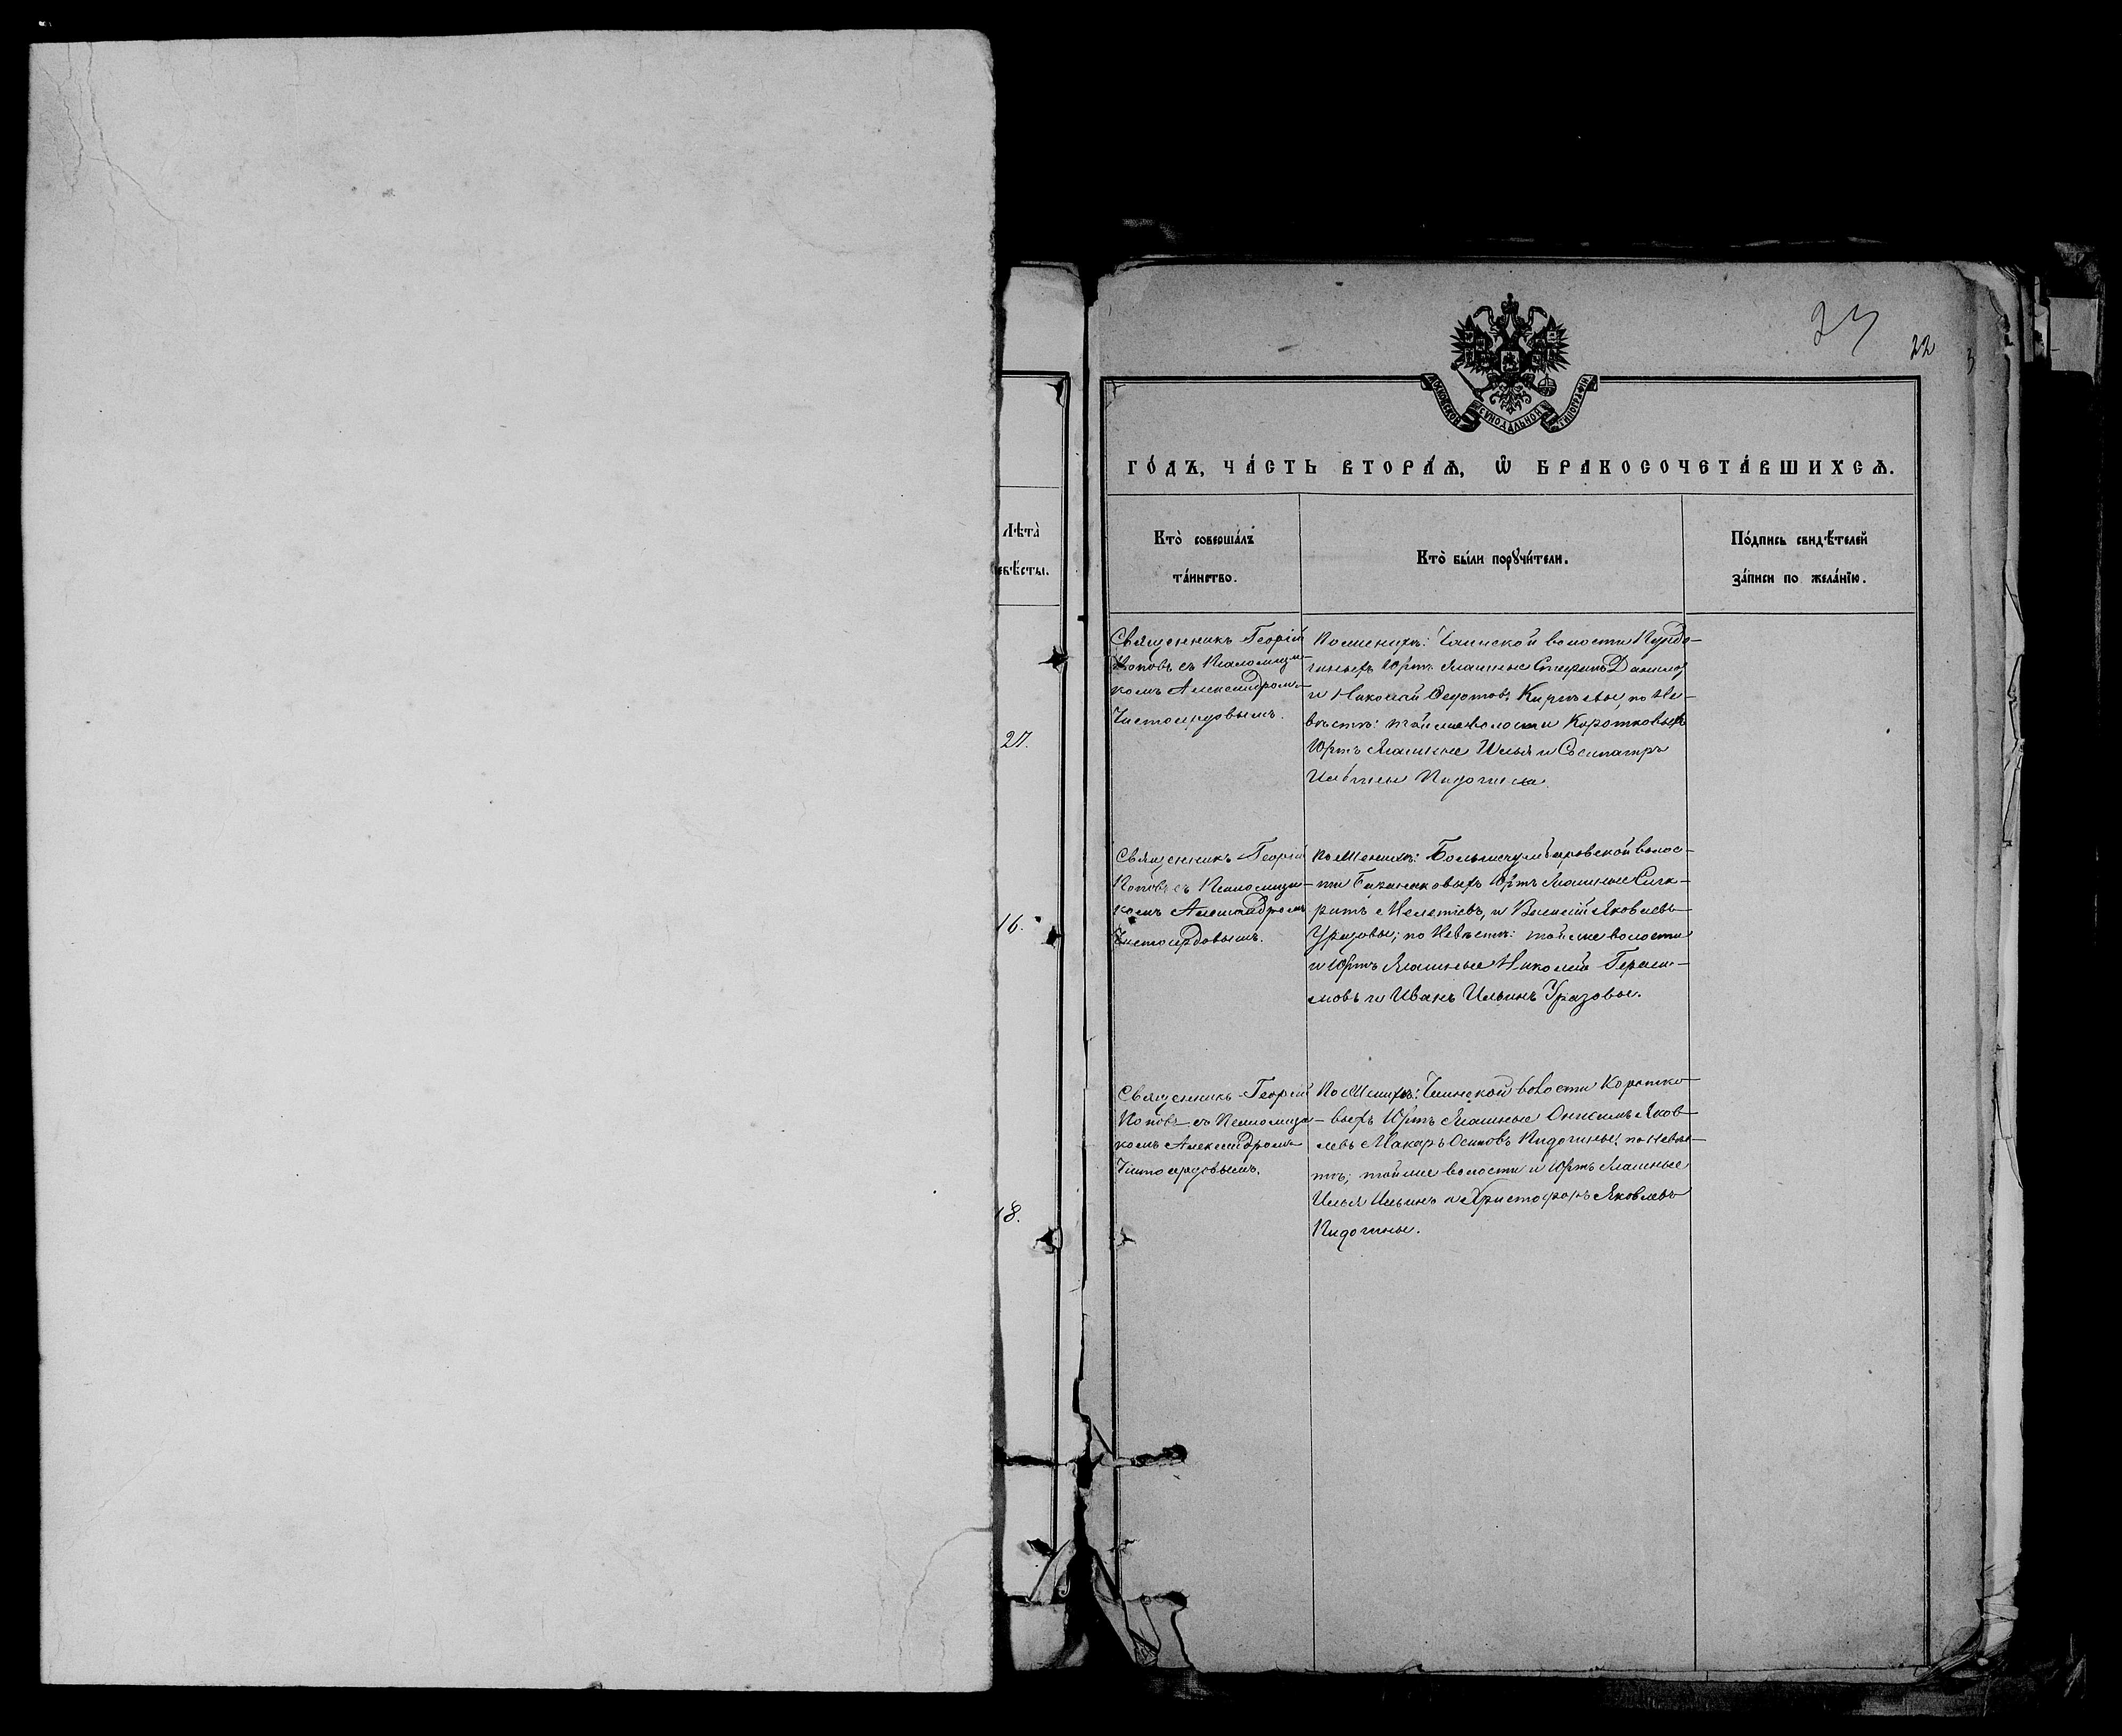 23
22
МОСКОВСКОЙ СѴНОДАЛЬНОЙ ТИПОГРАФІИ
ГО́ДЪ, ЧА́СТЬ ВТОРА́Ѧ, Ѽ БРАКОСОЧЕТА́ВШИХСѦ.
Лѣта̀
невѣ́сты.
Кто̀ соверша́лъ
та́инство.
Кто̀ бы́ли порꙋчи́тели.
По́дпись свидѣ́телей
за́писи по жела́нїю.
27.
16.
18.
Священникъ Георгій
Поповъ съ Псаломщи-
комъ Александромъ
Чистосердовымъ.
По женихѣ: Чаинской волости
Юртъ Ясашные Стефанъ Данилов
и Николай Федотовъ, по Не-
вѣстѣ: той же волости Коротковыхъ
Юртъ Ясашные Илья и Сосипатръ
Ильины Пидогины
Священникъ Георгій
Поповъ съ Псаломщи-
комъ Александромъ
Чистосердовымъ.
По Женихѣ: волос-
ти Юртъ Ясашные
Мелетіевъ, и Василій Яковлевъ
Уразовы; по Невѣстѣ: той же волости
и Юртъ Ясашные Николай Гераси-
мовъ и Иванъ Ильинъ Уразовы.
Священникъ Георгій
Поповъ съ Псаломщи-
комъ Александромъ
Чистосердовымъ.
По Женихѣ: Чаинской волости Коротко-
выхъ Юртъ Ясашные Онисимъ Яков-
левъ Макаръ Осиповъ Пидогины; по Невѣс-
тѣ; той же волости и Юртъ Ясашные
Илья Ильинъ и Христофоръ Яковлевъ
Пидогины.